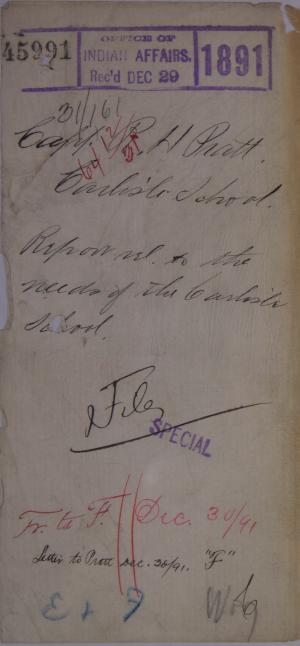 45991
OFFICE OF
INDIAN AFFAIRS.
Rec'd DEC 29
1891
31/161
Capt. R H Pratt.
Carlisle School.
Report rel. to the
needs of the Carlisle
School.
File
SPECIAL
Tr. to F. Dec. 30/91
Letter to Pratt Dec. 30/91. "F"